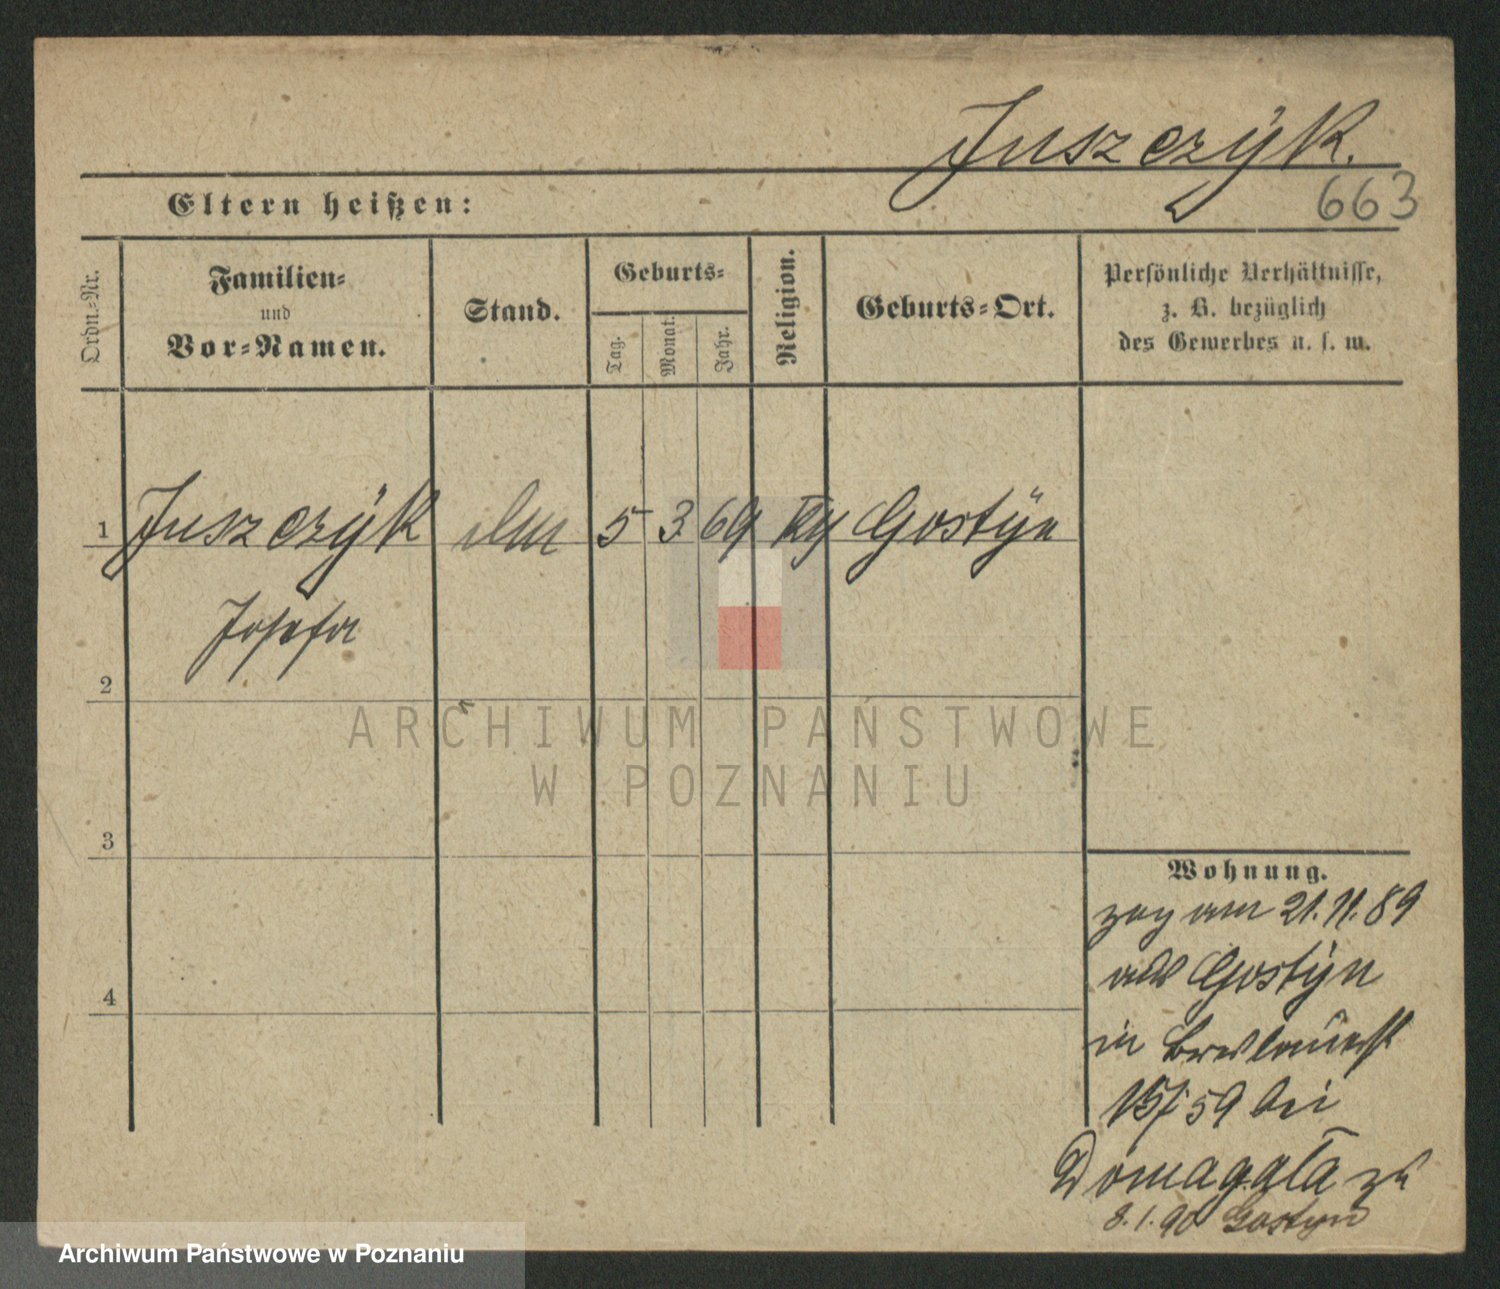 Juszczÿk.
663
Eltern heißen:
Ordn.-Nr.
Familien-
und
Vor-Namen.
Stand.
Geburts-
Tag.
Monat.
Jahr.
Religion.
Geburts-Ort.
Persönliche Verhältnisse,
z. B. bezüglich
des Gewerbes u. s. w.
1 Juszczÿk 5 3 69 Gostÿn
Josefa
2
3
4
Wohnung.
zog am 21.11.89
aus Gostÿn
in
15/59 bei
Domagała zu
8.1.90 Gostyn
ARCHIWUM PAŃSTWOWE
W POZNANIU
Archiwum Państwowe w Poznaniu